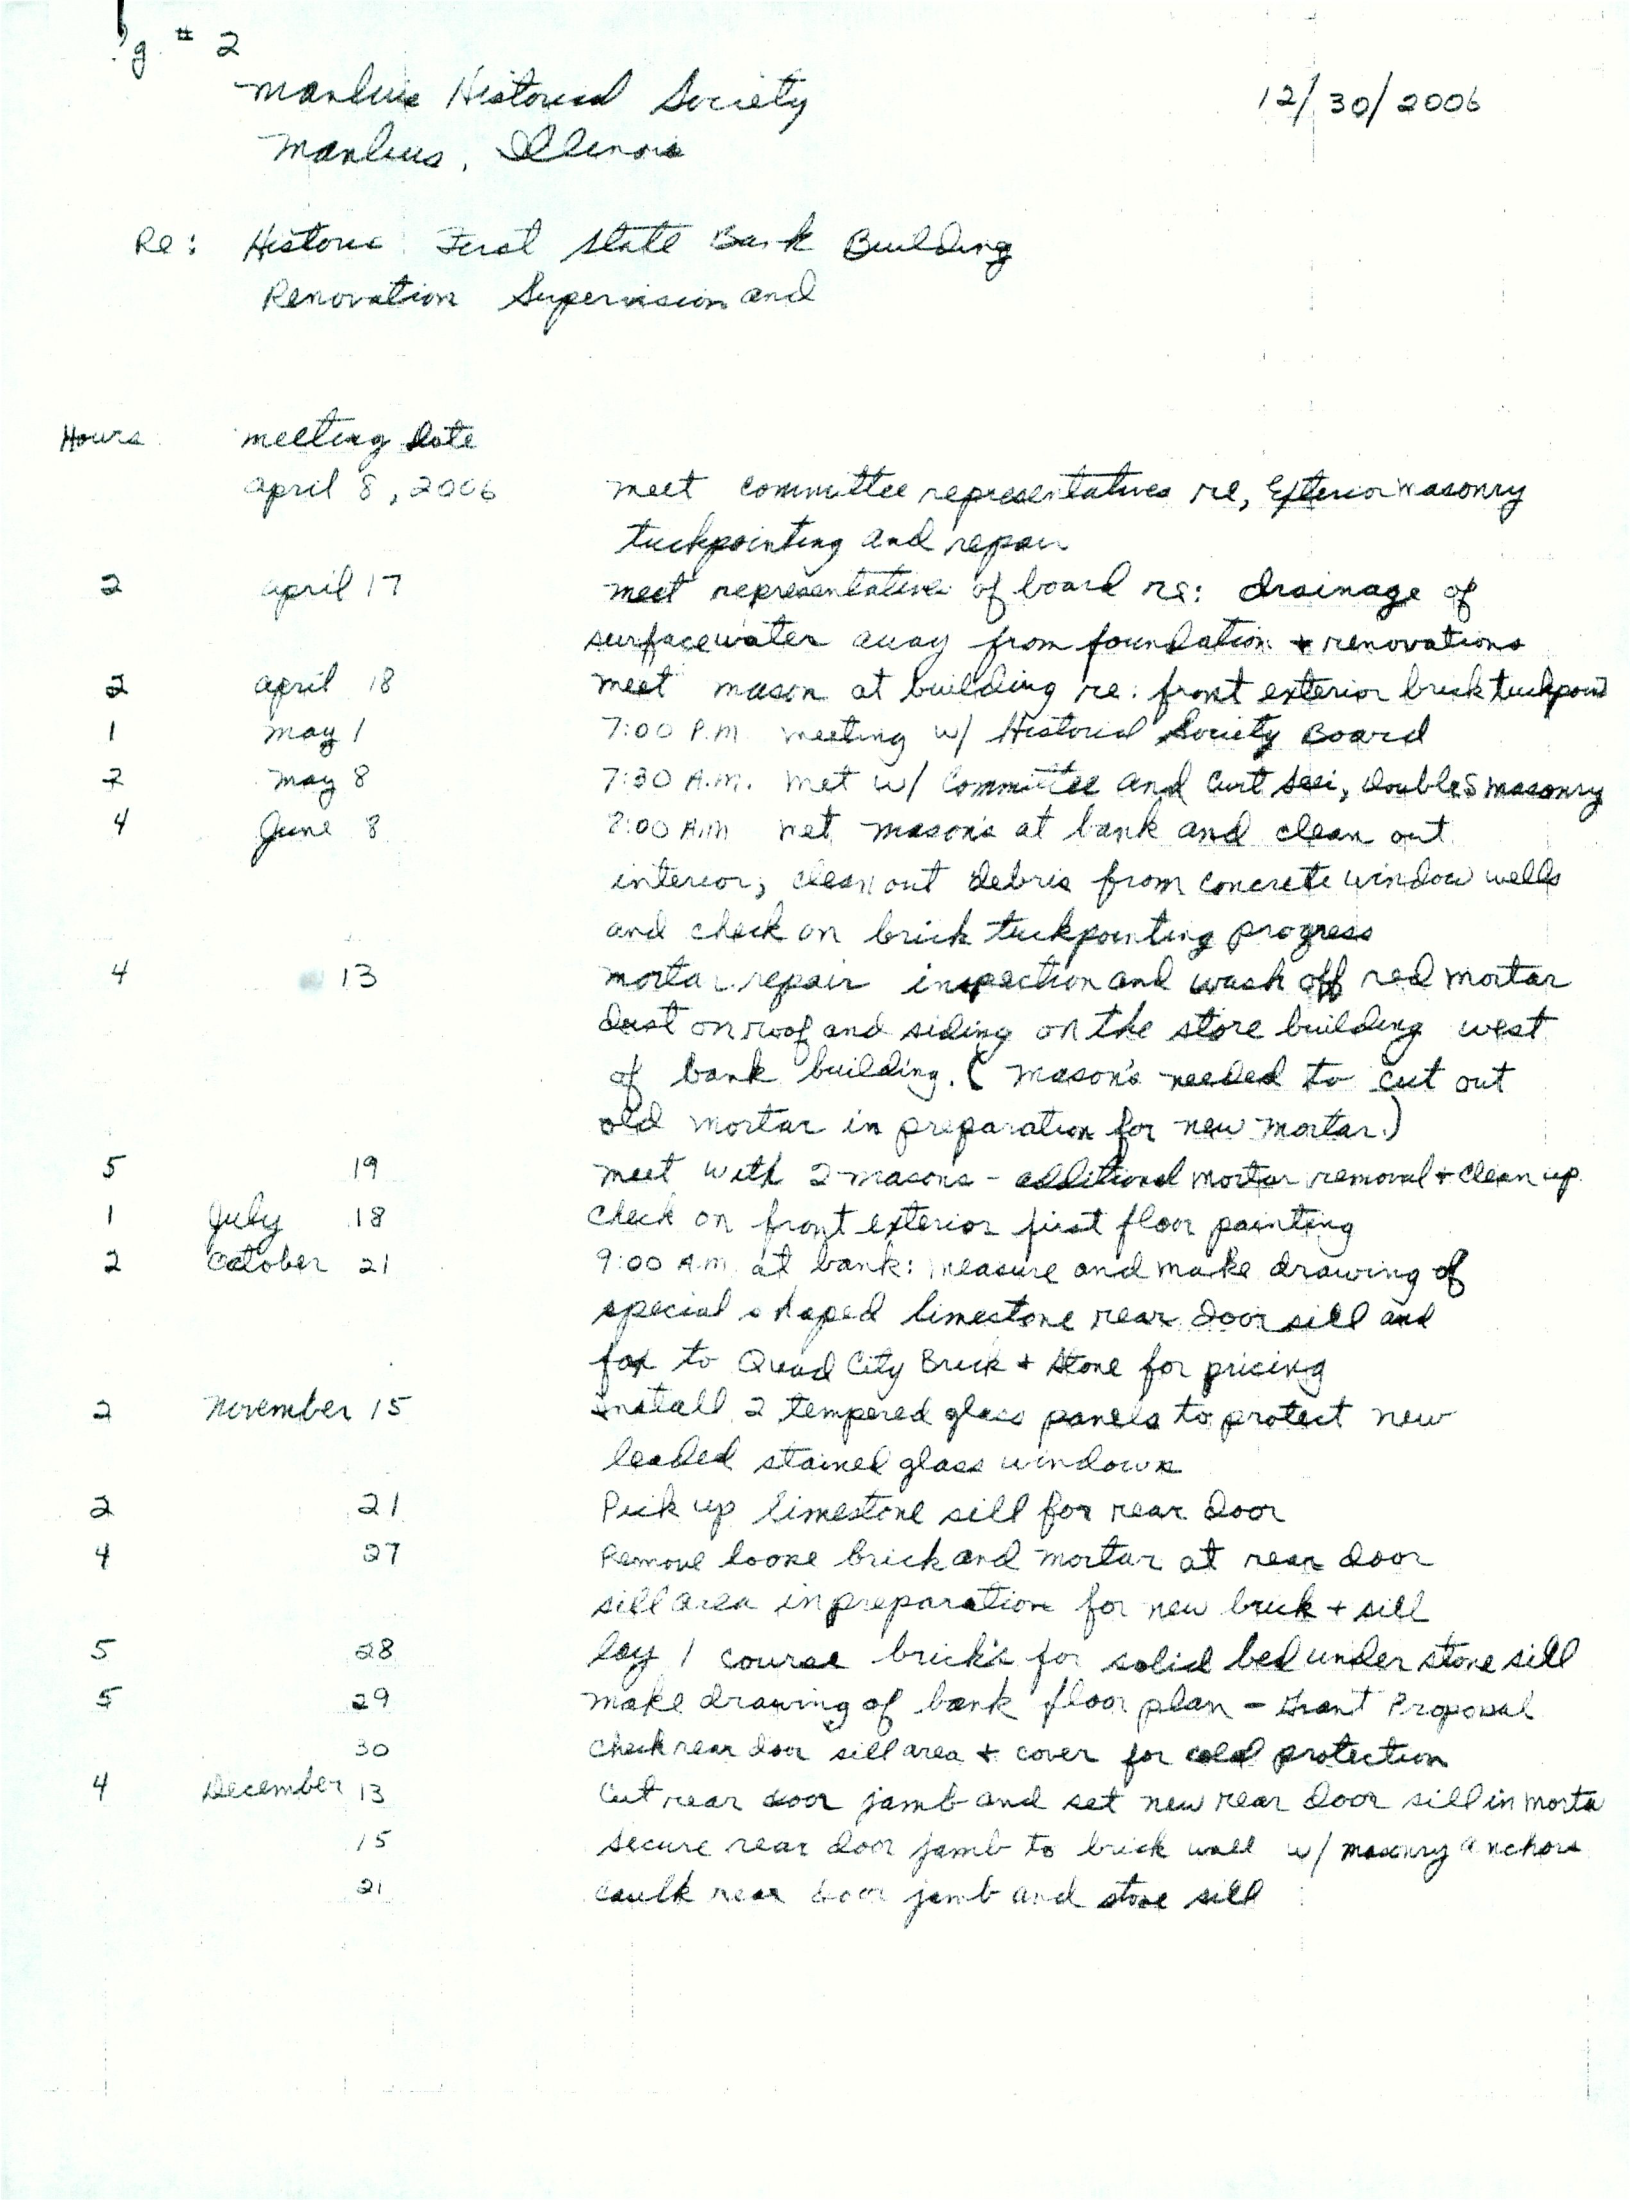 Pg # 2
Manlius Historical Society 12/30/2006
Manlius, Illinois
Re: Historic First State Bank Building
Renovation Supervision and
Hours meeting date
april 8, 2006 meet committee representatives re, Exterior masonry
tuckpointing and repair
2 april 17 meet representative of board re: drainage of
surfacewater away from foundation + renovations
2 april 18 meet mason at building re: front exterior brick tuckpoint
1 may 1 7:00 P.M meeting w/ Historical Society Board
2 may 8 7:30 A.M. met w/ Committee and Curt , Double S masonry
4 June 8 8:00 A.M met mason's at bank and clean out
interior, clean out debris from concrete window wells
and check on brick tuckpointing progress
4 13 mortar repair inspection and wash off red mortar
dust on roof and siding on the store building west
of bank building. (mason's needed to cut out
old mortar in preparation for new mortar.)
5 19 meet with 2 masons - additional mortar removal + clean up
1 July 18 check on front exterior first floor painting
2 October 21 9:00 A.M. at bank: measure and make drawing of
special shaped limestone rear door sill and
fax to Quad City Brick + Stone for pricing
2 November 15 install 2 tempered glass panels to protect new
leaded stained glass windows
2 21 Pick up limestone sill for rear door
4 27 Remove loose brick and mortar at rear door
sill area in preparation for new brick + sill
5 28 lay 1 course brick's for solid bed under stone sill
5 29 make drawing of bank floor plan - Grant Proposal
30 check rear door sill area + cover for cold protection
4 December 13 Cut rear door jamb and set new rear door sill in morta
15 secure rear door jamb to brick wall w/ masonry anchors
21 caulk rear door jamb and stone sill